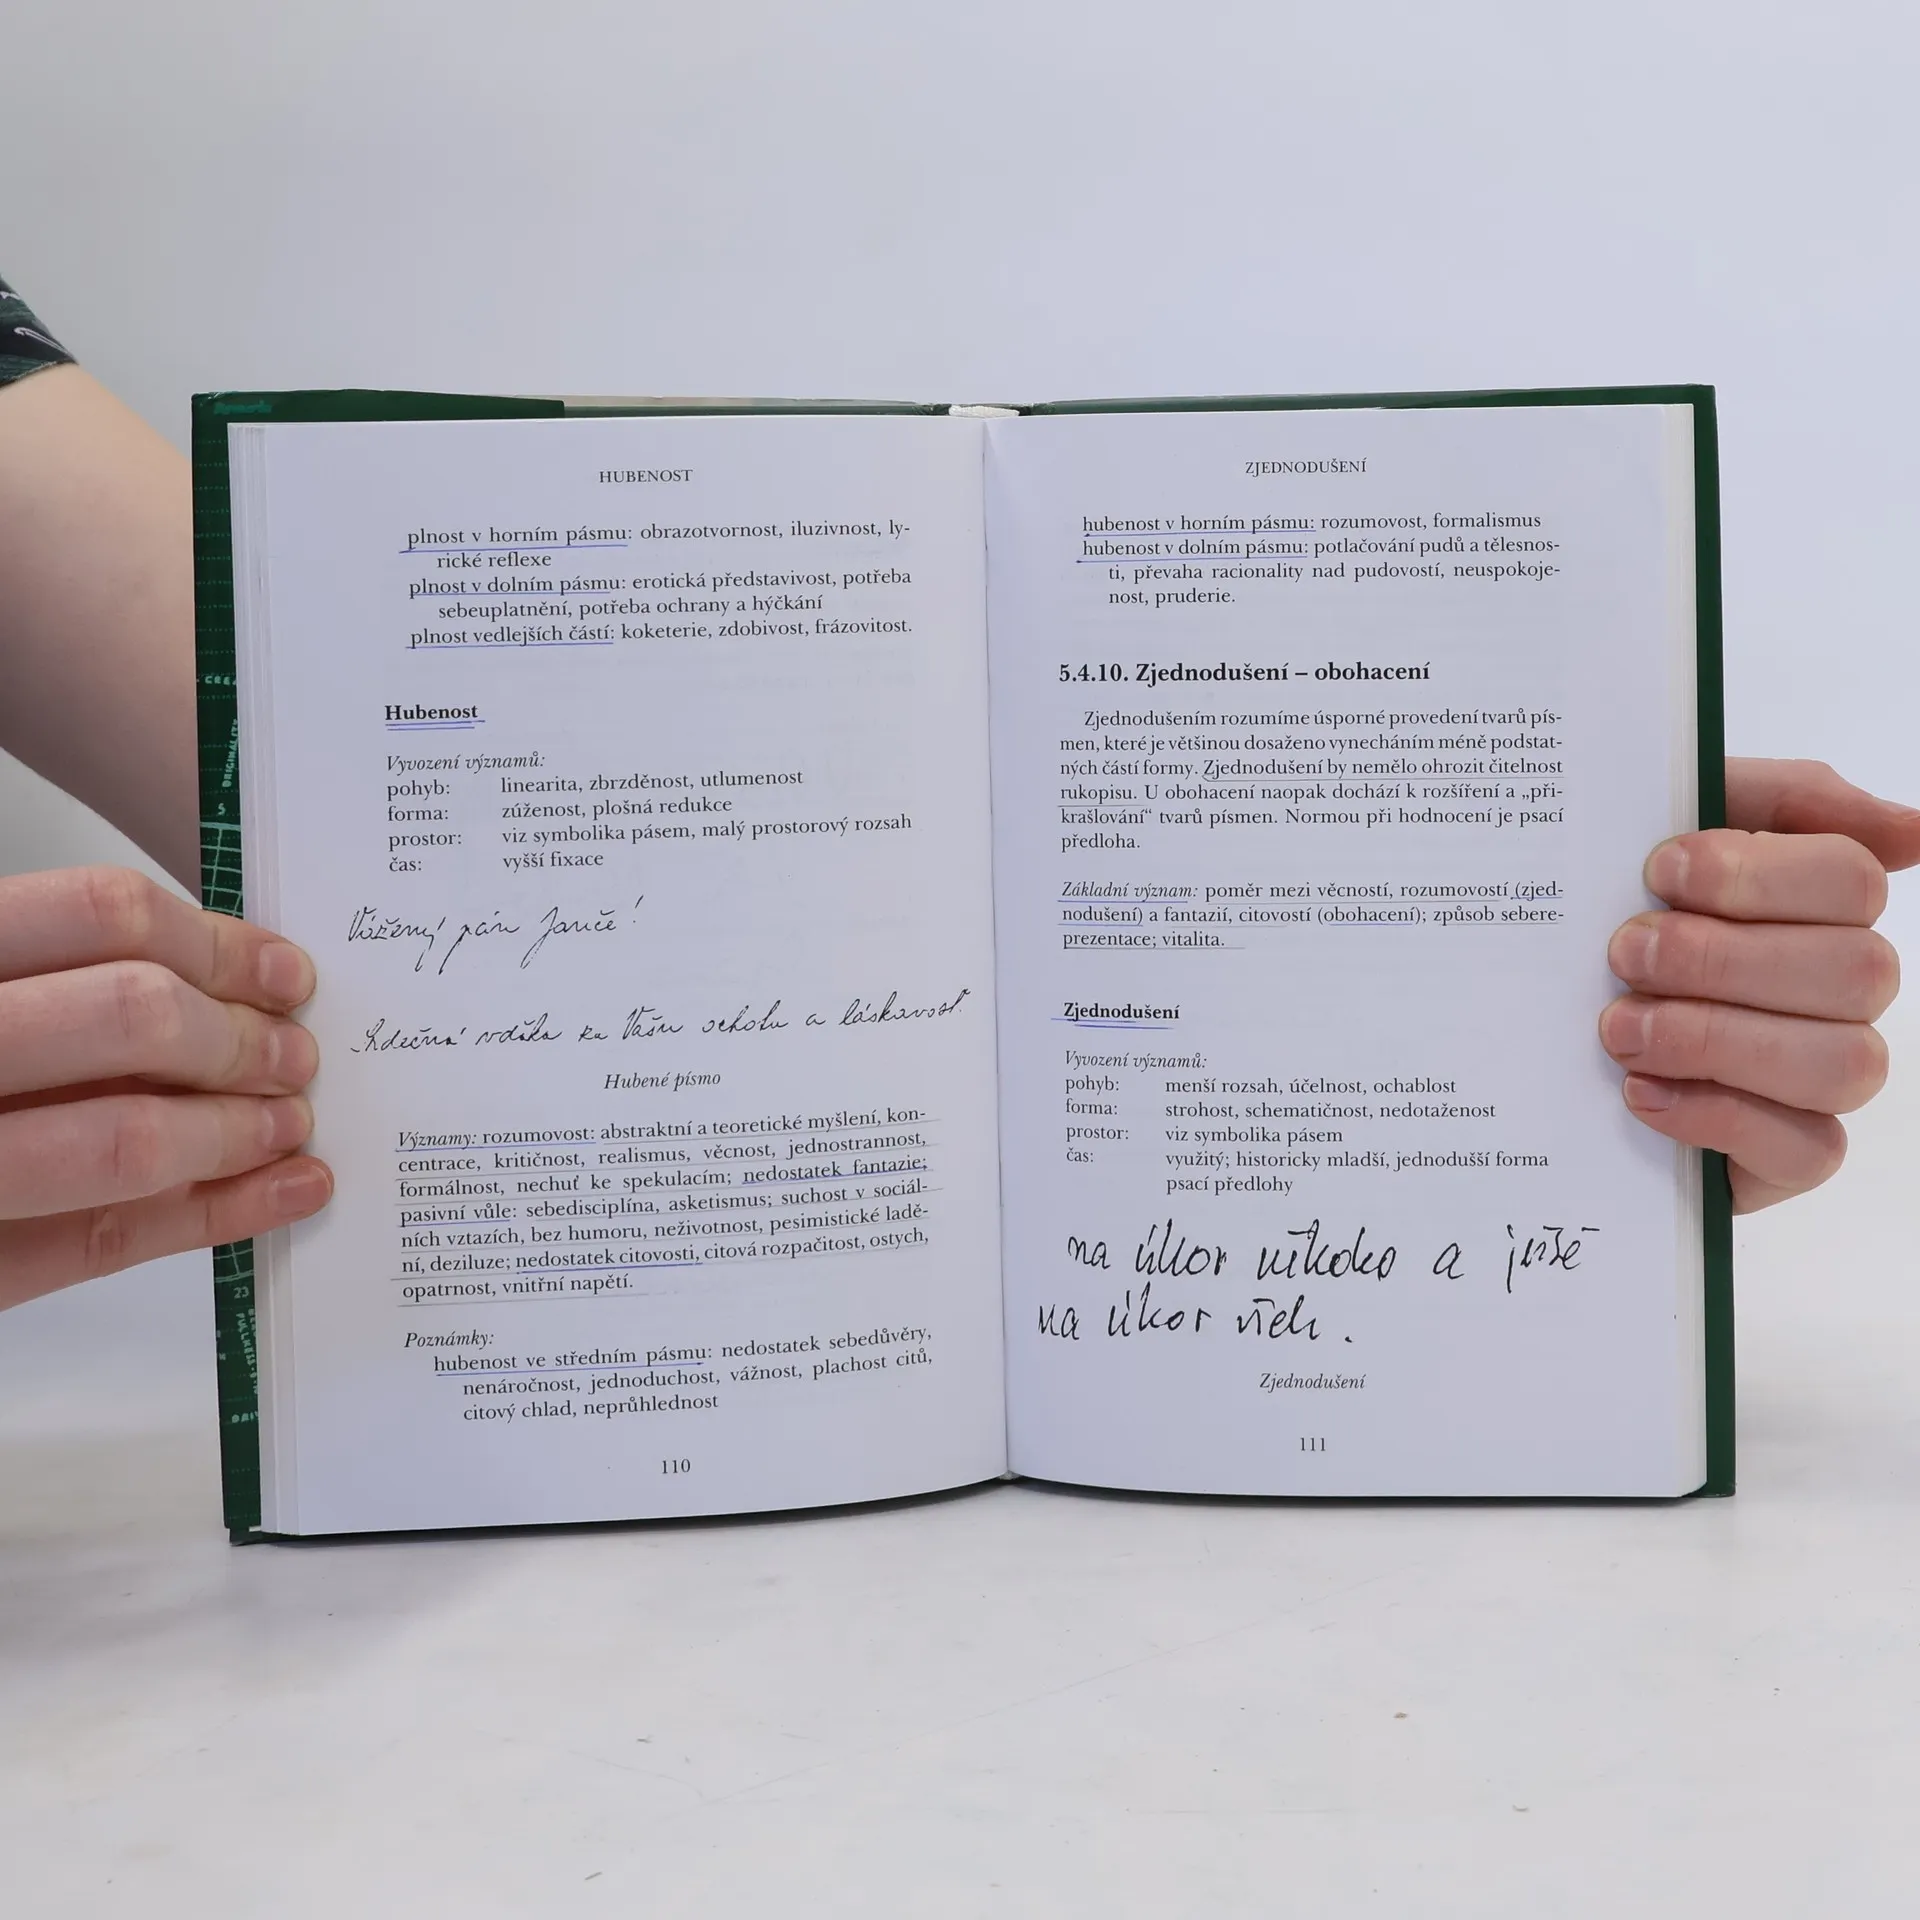 HUBENOST
plnost v horním pásmu: obrazotvornost, iluzivnost, ly-
rické reflexe
plnost v dolním pásmu: erotická představivost, potřeba
sebeuplatnění, potřeba ochrany a hýčkání
plnost vedlejších částí: koketerie, zdobivost, frázovitost.
Hubenost
Vyvození významů:
pohyb: linearita, zbrzděnost, utlumenost
forma: zúženost, plošná redukce
prostor: viz symbolika pásem, malý prostorový rozsah
čas: vyšší fixace
Vážený pán
Srdečná vďaka za Vašu ochotu a láskavosť.
Hubené písmo
Významy: rozumovost: abstraktní a teoretické myšlení, kon-
centrace, kritičnost, realismus, věcnost, jednostrannost,
formálnost, nechuť ke spekulacím; nedostatek fantazie;
pasivní vůle: sebedisciplína, asketismus; suchost v sociál-
ních vztazích, bez humoru, neživotnost, pesimistické ladě-
ní, deziluze; nedostatek citovosti, citová rozpačitost, ostych,
opatrnost, vnitřní napětí.
Poznámky:
hubenost ve středním pásmu: nedostatek sebedůvěry,
nenáročnost, jednoduchost, vážnost, plachost citů,
citový chlad, neprůhlednost
110
ZJEDNODUŠENÍ
hubenost v horním pásmu: rozumovost, formalismus
hubenost v dolním pásmu: potlačování pudů a tělesnos-
ti, převaha racionality nad pudovostí, neuspokoje-
nost, pruderie.
5.4.10. Zjednodušení – obohacení
Zjednodušením rozumíme úsporné provedení tvarů pís-
men, které je většinou dosaženo vynecháním méně podstat-
ných částí formy. Zjednodušení by nemělo ohrozit čitelnost
rukopisu. U obohacení naopak dochází k rozšíření a „při-
krašlování“ tvarů písmen. Normou při hodnocení je psací
předloha.
Základní význam: poměr mezi věcností, rozumovostí (zjed-
nodušení) a fantazií, citovostí (obohacení); způsob sebere-
prezentace; vitalita.
Zjednodušení
Vyvození významů:
pohyb: menší rozsah, účelnost, ochablost
forma: strohost, schematičnost, nedotaženost
prostor: viz symbolika pásem
čas: využitý; historicky mladší, jednodušší forma
psací předlohy
na úkor někoho a ještě
na úkor všech.
Zjednodušení
111